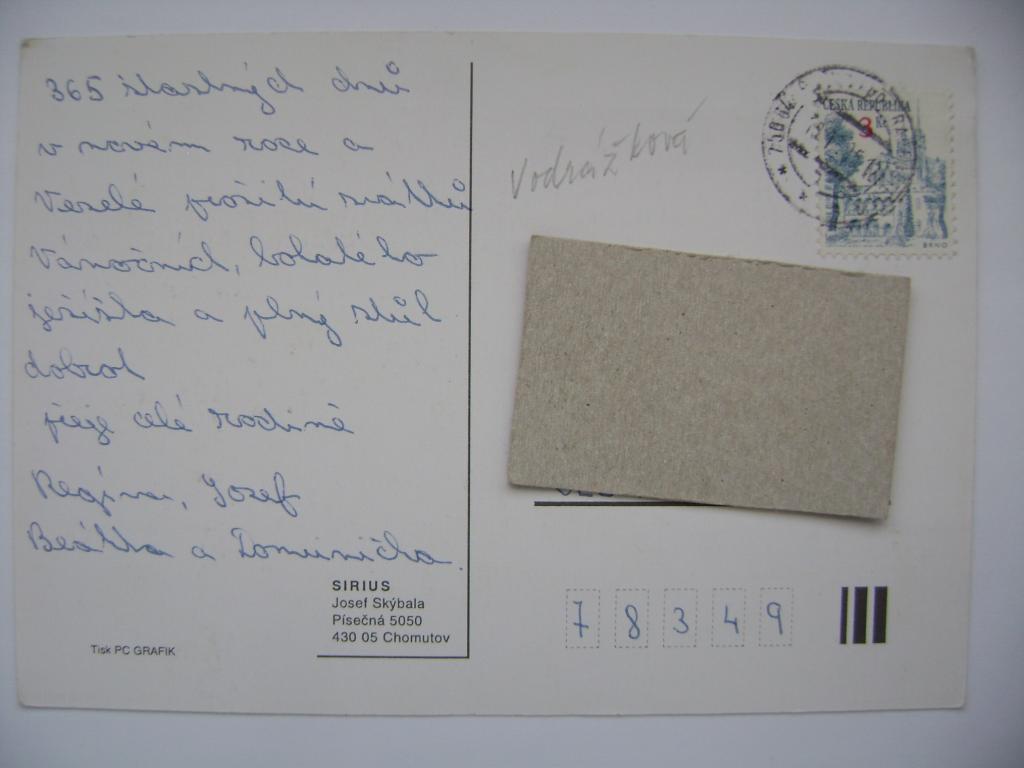 365 šťastných dnů
v novém roce a
Veselé prožití svátků
Vánočních, bohatého
ježíška a plný stůl
dobrot
přeje celé rodině
Regina, Josef
Beátka a Dominička.
SIRIUS
Josef Skýbala
Písečná 5050
430 05 Chomutov
Tisk PC GRAFIK
Vodrážková
ČESKÁ REPUBLIKA
3
BRNO
7 8 3 4 9